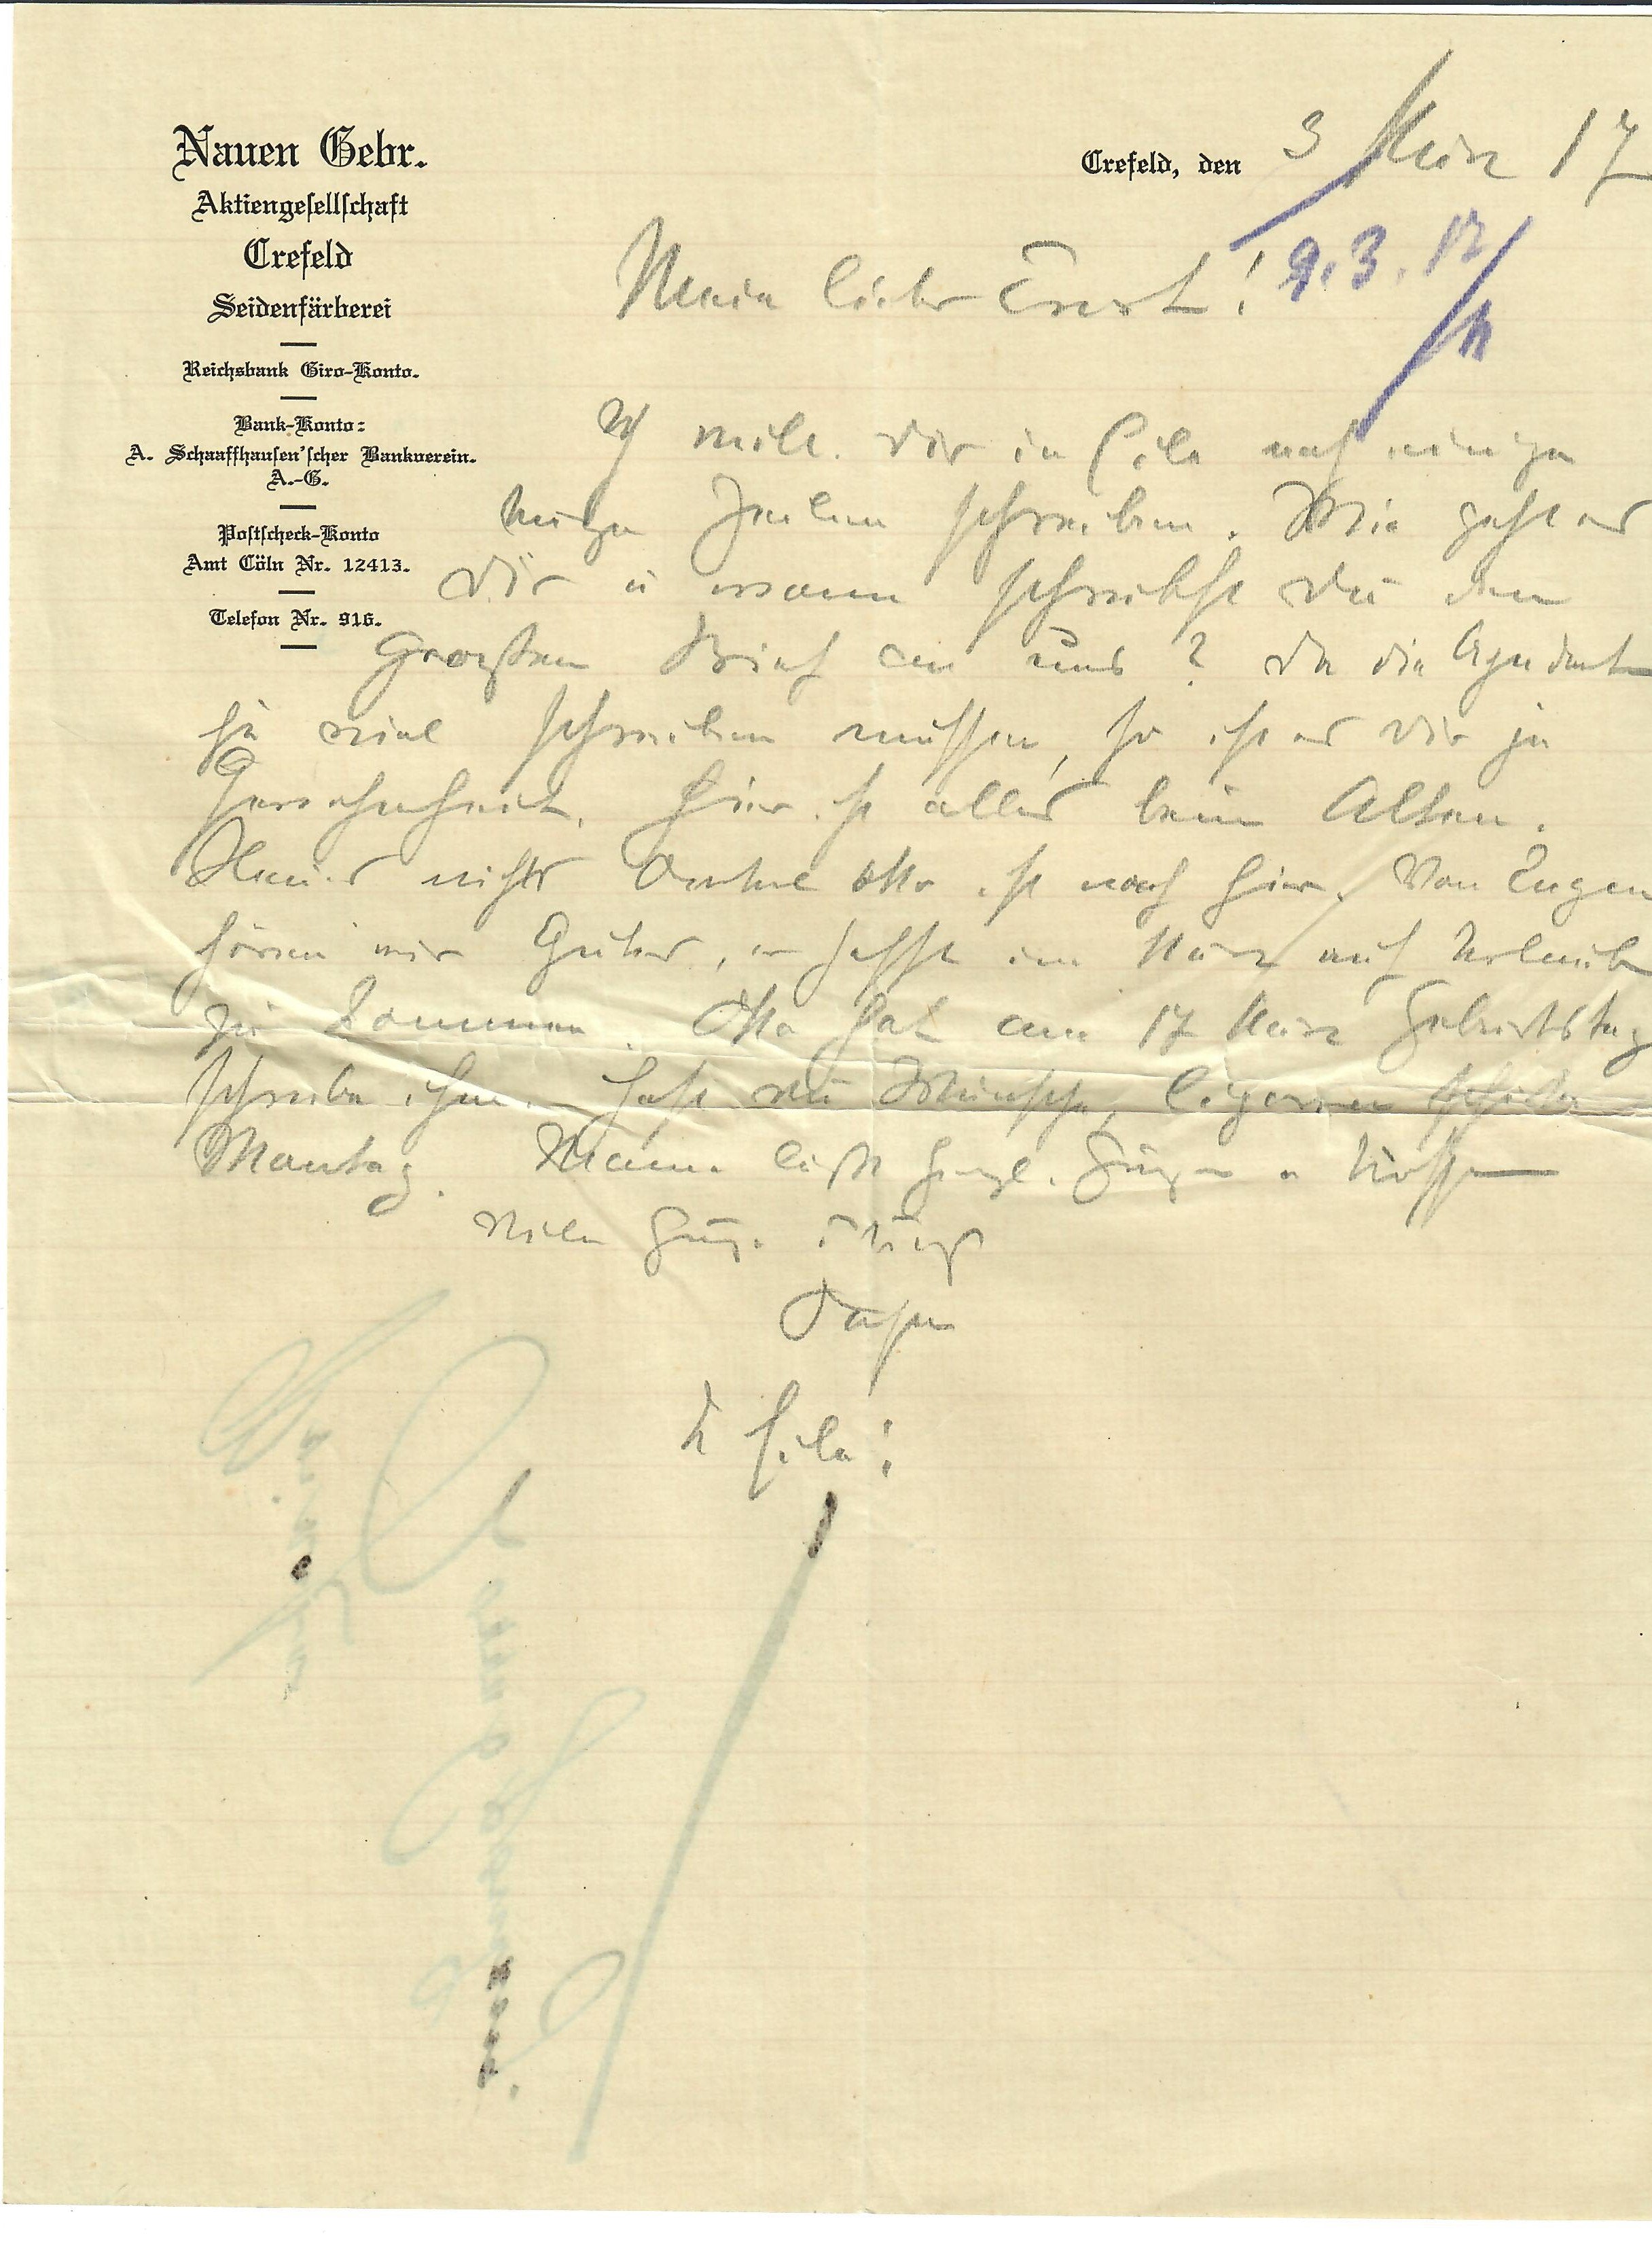 Nauen Gebr.
Aktiengesellschaft
Crefeld
Seidenfärberei
Reichsbank Giro-Konto.
Bank-Konto:
A. Schaaffhausen'scher Bankverein.
A.-G.
Postscheck-Konto
Amt Cöln Nr. 12413.
Telefon Nr. 916.
Crefeld, den 3 März 17
9.3.17
Mein lieber Ernst!
Ich will dir in Eile noch einige
kurze Zeilen schreiben. Wie geht es
Dir u wann schreibst Du den
grossen Brief an uns? Da die
so viel schreiben müssen, so ist es Dir ja
Gewohnheit. Hier ist alles beim Alten.
Neues nichts Onkel Otto ist noch hier. Von Eugen
hören wir Gutes, er hofft im März auf Urlaub
zu kommen. Otto hat am 17 März Geburtstag
schreibe ihm. Hast du Wünsche, Cigarren
Montag. Mama läßt herzl. grüßen u küssen
Viele Grüße u Kuß
Papa
In Eile!